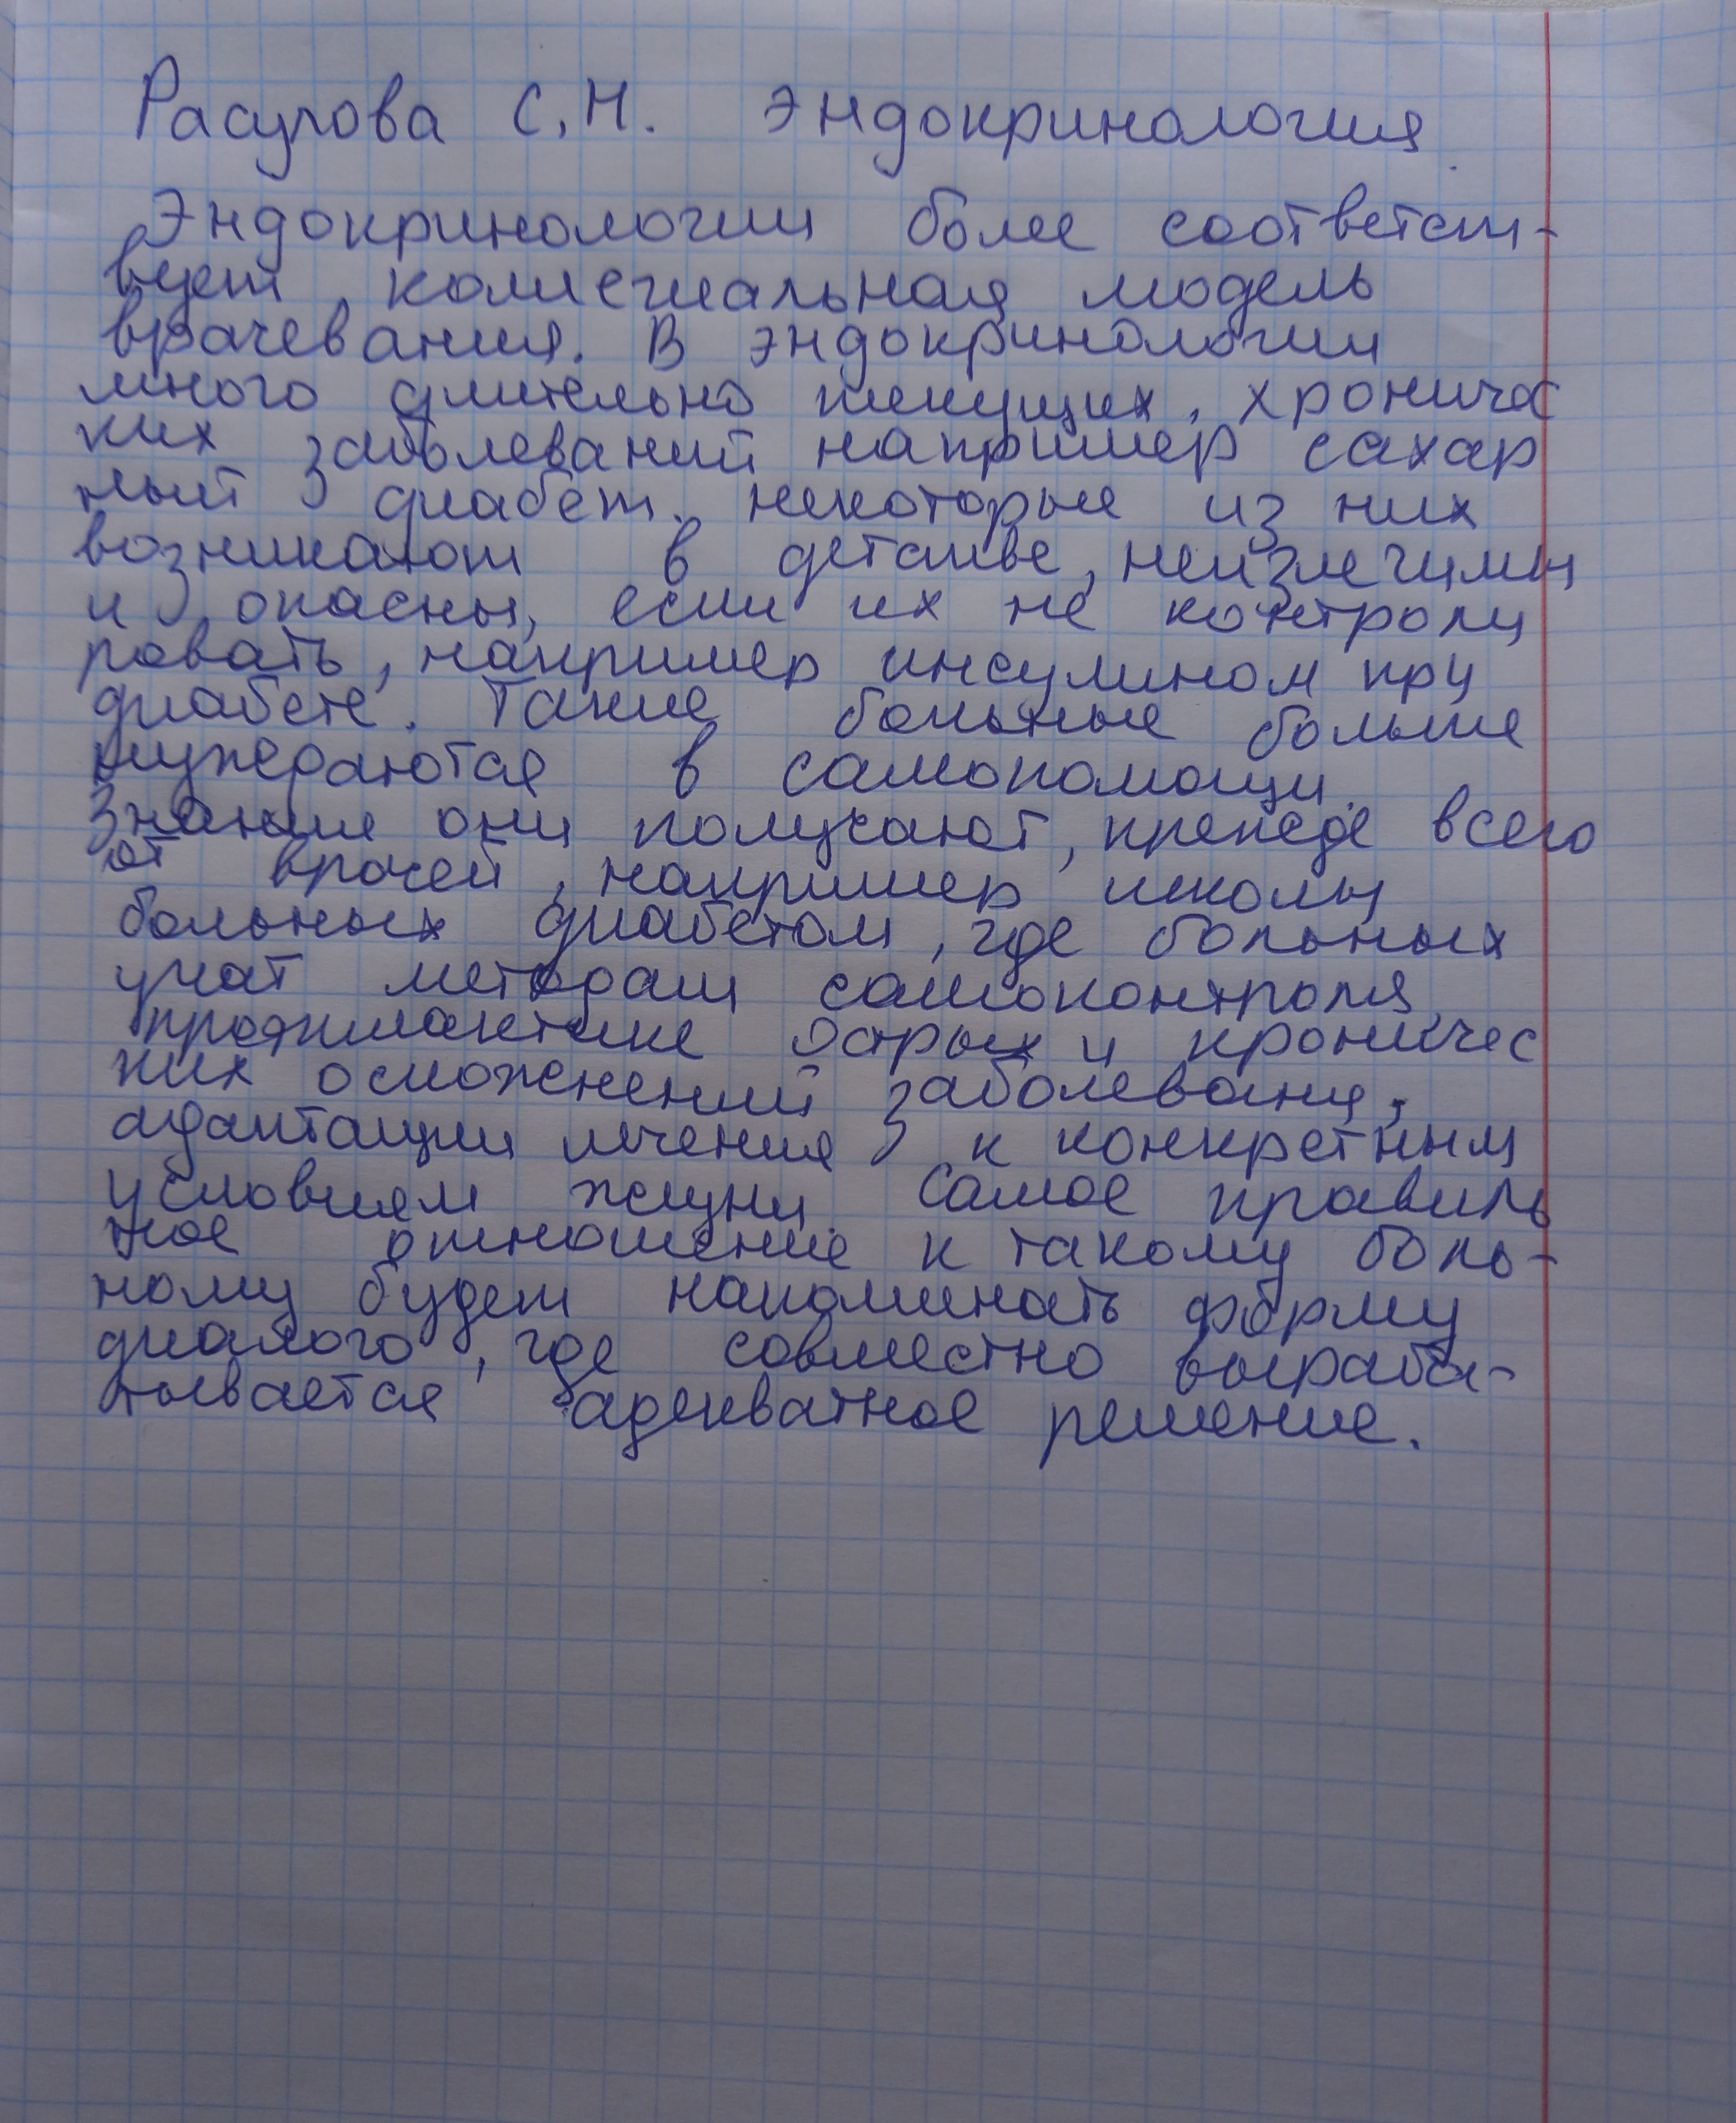 Расулова С.Н. Эндокринология
Эндокринологии более соответст-
вует коллегиальная модель
врачевания. В эндокринологии
много длительно текущих, хроничес
ких заболеваний например сахар
ный диабет, некоторые из них
возникают в детстве, неизлечимы
и опасны, если их не контроли
ровать, например инсулином при
диабете. Такие больные больше
нуждаются в самопомощи.
Знание они получают, прежде всего
от врачей, например школы
больных диабетом, где больных
учат методам самоконтроля,
профилактике острых и хроничес
ких осложнений заболевани,
адаптации лечения к конкретным
условиям жизни. Самое правиль
ное отношение к такому боль-
ному будет напоминать форму
диалога, где совместно выраба-
тывается адекватное решение.